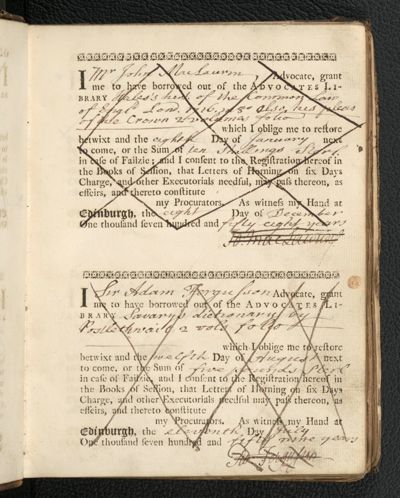 I Mr John MacLaurin Advocate, grant
me to have borrowed out of the ADVOCATES LI-
BRARY Hales's hist of the Common Law
of Engld Lond. 1716, 8o also, his pleas
of the Crown 2 volumes folio
which I oblige me to restore
betwixt and the eighth Day of January next
to come, or the Sum of ten Shillings Sterl
in case of Failzie; and I consent to the Registration hereof in
the Books of Session, that Letters of Horning on six Days
Charge, and other Executorials needful, may pass thereon, as
effeirs, and thereto constitute
my Procurators. As witness my Hand at
Edinburgh, the eight Day of December
One thousand seven hundred and fifty eight years
Jo MacLaurin
I Sir Adam Fergusson Advocate, grant
me to have borrowed out of the ADVOCATES LI-
BRARY Savary's dictionary by
Postlethwaite 2 vols folio
which I oblige me to restore
betwixt and the twelfth Day of August next
to come, or the Sum of five pounds Sterl
in case of Failzie, and I consent to the Registration hereof in
the Books of Session, that Letters of Horning on six Days
Charge, and other Executorials needful may pass thereon, as
effeirs, and thereto constitute
my Procurators. As witness my Hand at
Edinburgh, the eleventh Day July
One thousand seven hundred and fifty nine years
Ad: Fergusson